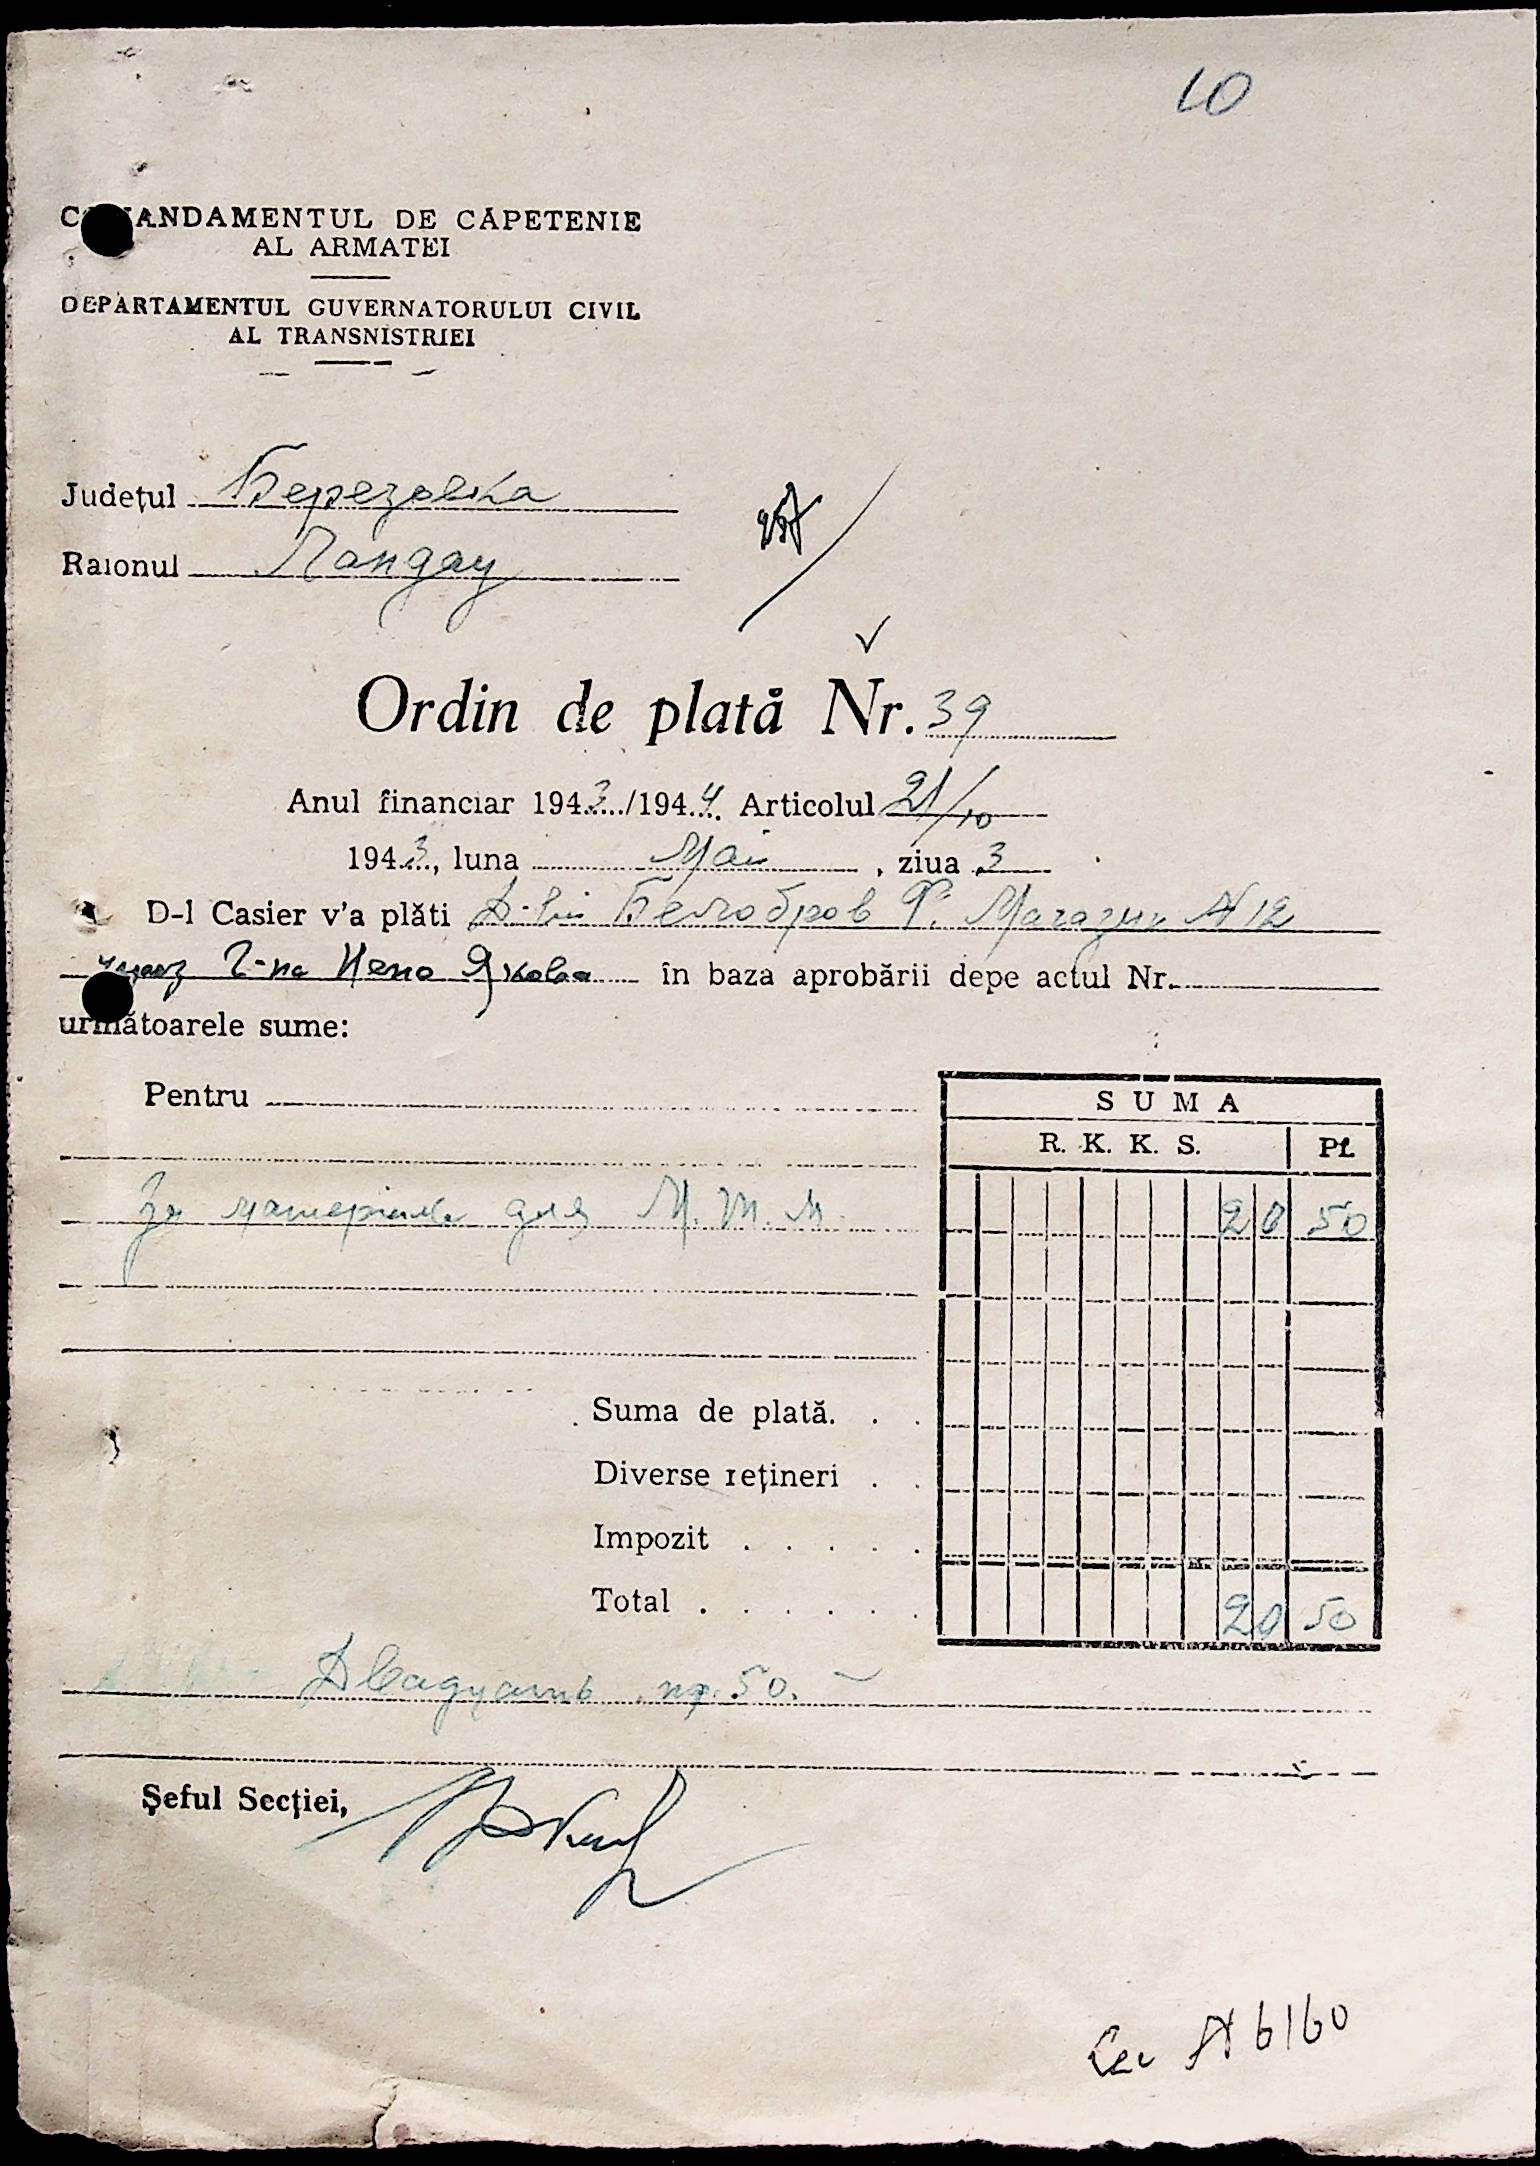 10
COMANDAMENTUL DE CĂPETENIE
AL ARMATEI
DEPARTAMENTUL GUVERNATORULUI CIVIL
AL TRANSNISTRIEI
Județul Березовка
Raionul Ландау
Ordin de plată Nr. 39
Anul financiar 1943/1944 Articolul 21/10
1943, luna Mai, ziua 3
D-l Casier v'a plăti Д-lui Белобров Ф. Магазин N 12
через Г-на Якова în baza aprobării depe actul Nr.
următoarele sume:
Pentru
SUMA
R. K. K. S. Pf.
За материалы для М.Т.М. 20 50
Suma de plată. . .
Diverse rețineri . .
Impozit . . . . .
Total . . . . . . 20 50
Двадцать пф. 50.
Șeful Secției,
N 6160